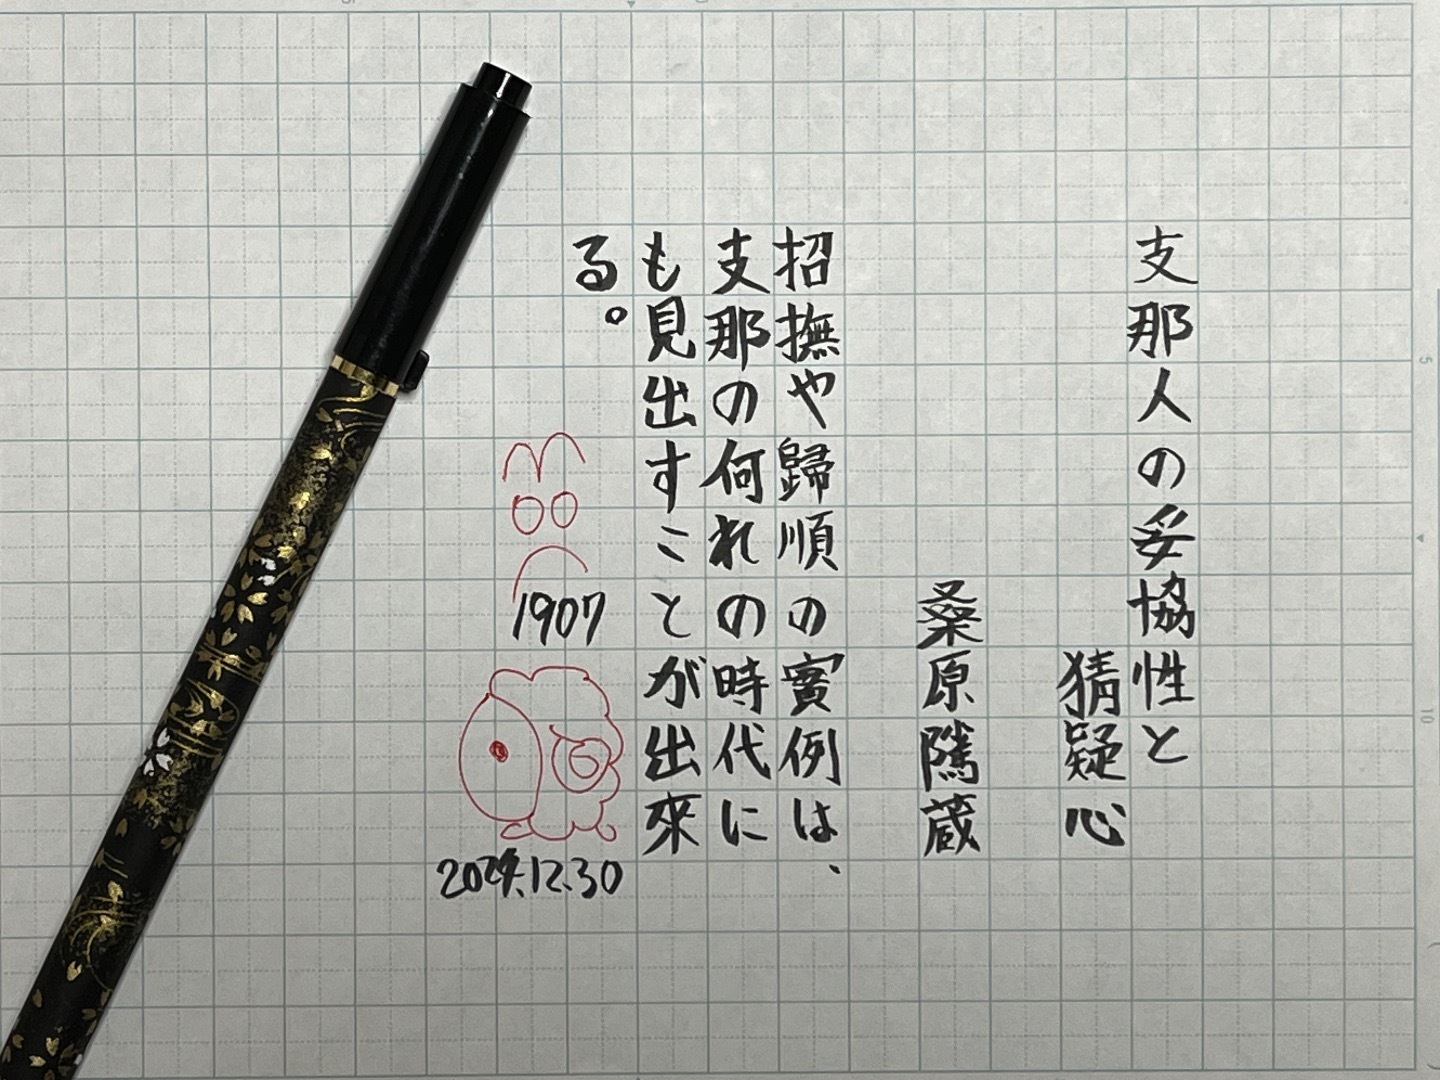 支那人の妥協性と
猜疑心
桑原隲蔵
招撫や歸順の實例は、
支那の何れの時代に
も見出すことが出來
る。
1907
2024.12.30
5
10